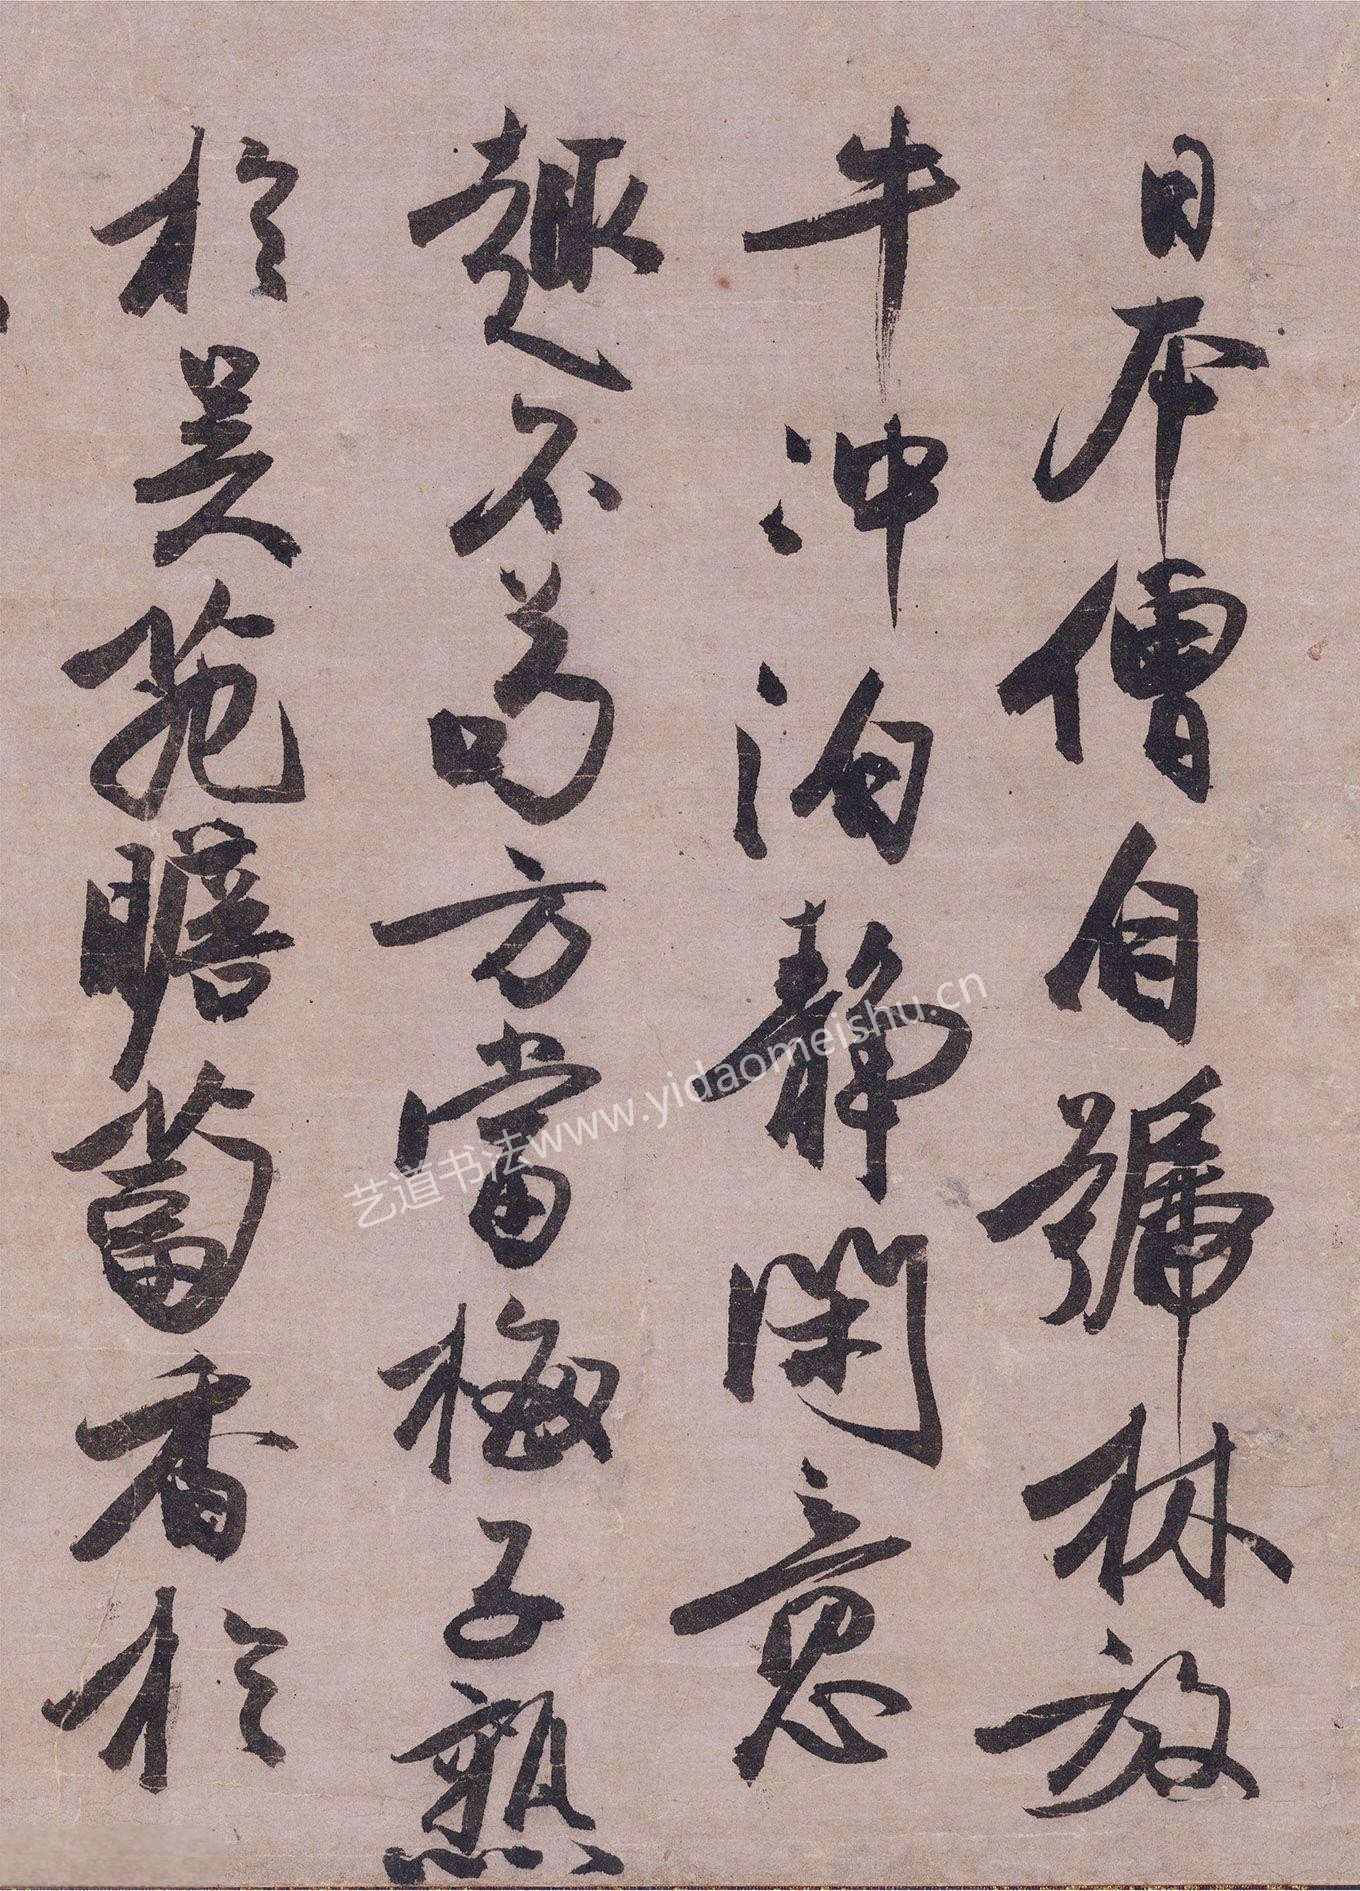 日本僧自號林放
牛冲泊靜閑意
趣不茍方當梅子熟
於吴苑瞻蔔香於
艺道书法www.yidaomeishu.cn